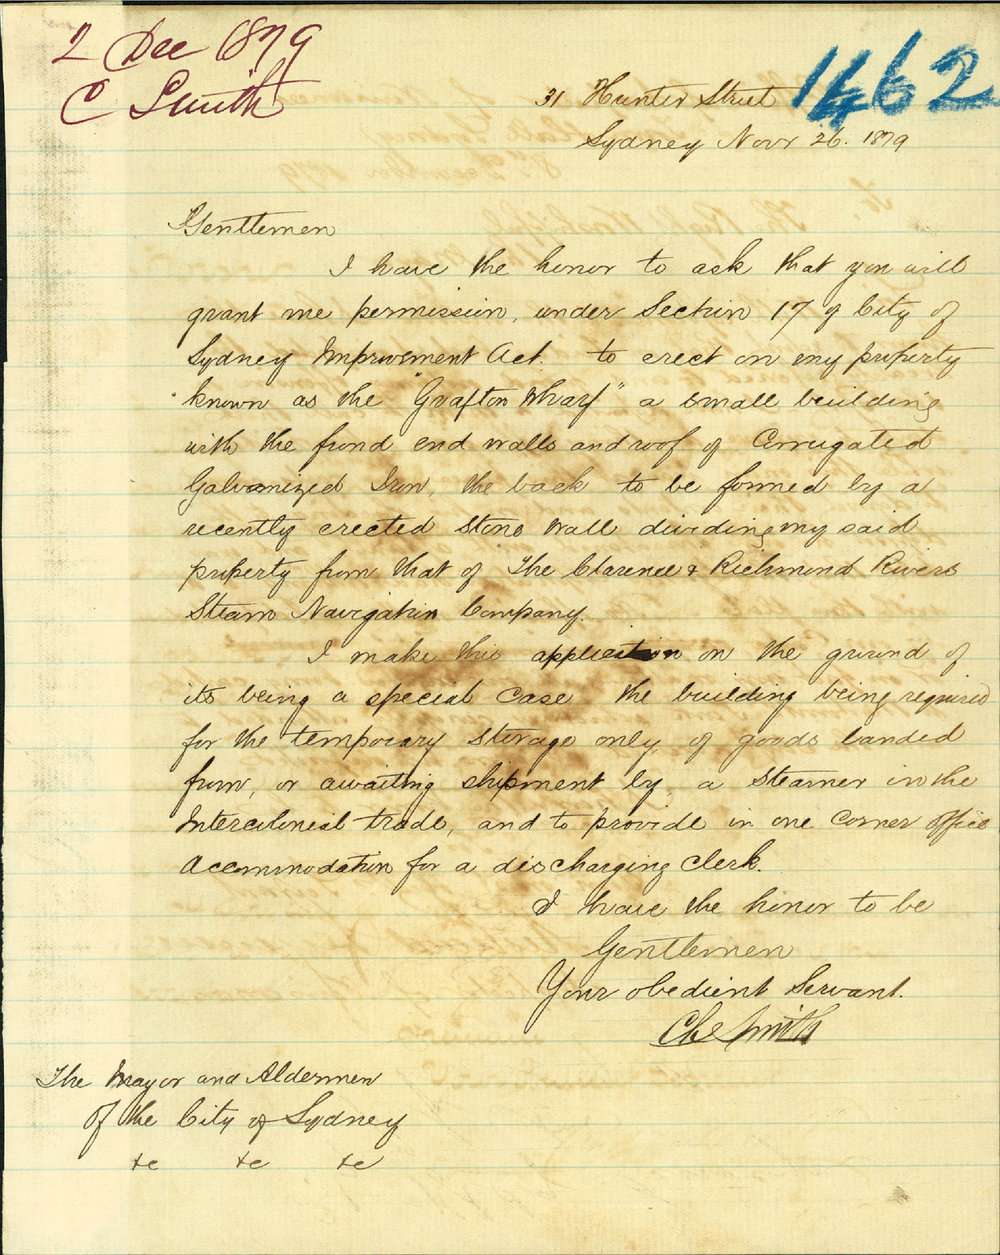 2 Dec 1879
C Smith
1462
31 Hunter Street
Sydney Novr 26. 1879
Gentlemen
I have the honor to ask that you will
grant me permission, under Section 17 of City of
Sydney Improvement Act. to erect on my property
known as the "Grafton Wharf" a small building
with the front end walls and roof of Corrugated
Galvanized Iron, the back to be formed by a
recently erected stone wall dividing my said
property from that of The Clarence & Richmond Rivers
Steam Navigation Company.
I make this application on the ground of
its being a special case the building being required
for the temporary storage only of goods landed
from, or awaiting shipment by, a Steamer in the
Intercolonial trade, and to provide in one corner office
accommodation for a discharging clerk.
I have the honor to be
Gentlemen
Your obedient Servant.
Chs Smith
The Mayor and Aldermen
Of the City of Sydney
&c &c &c